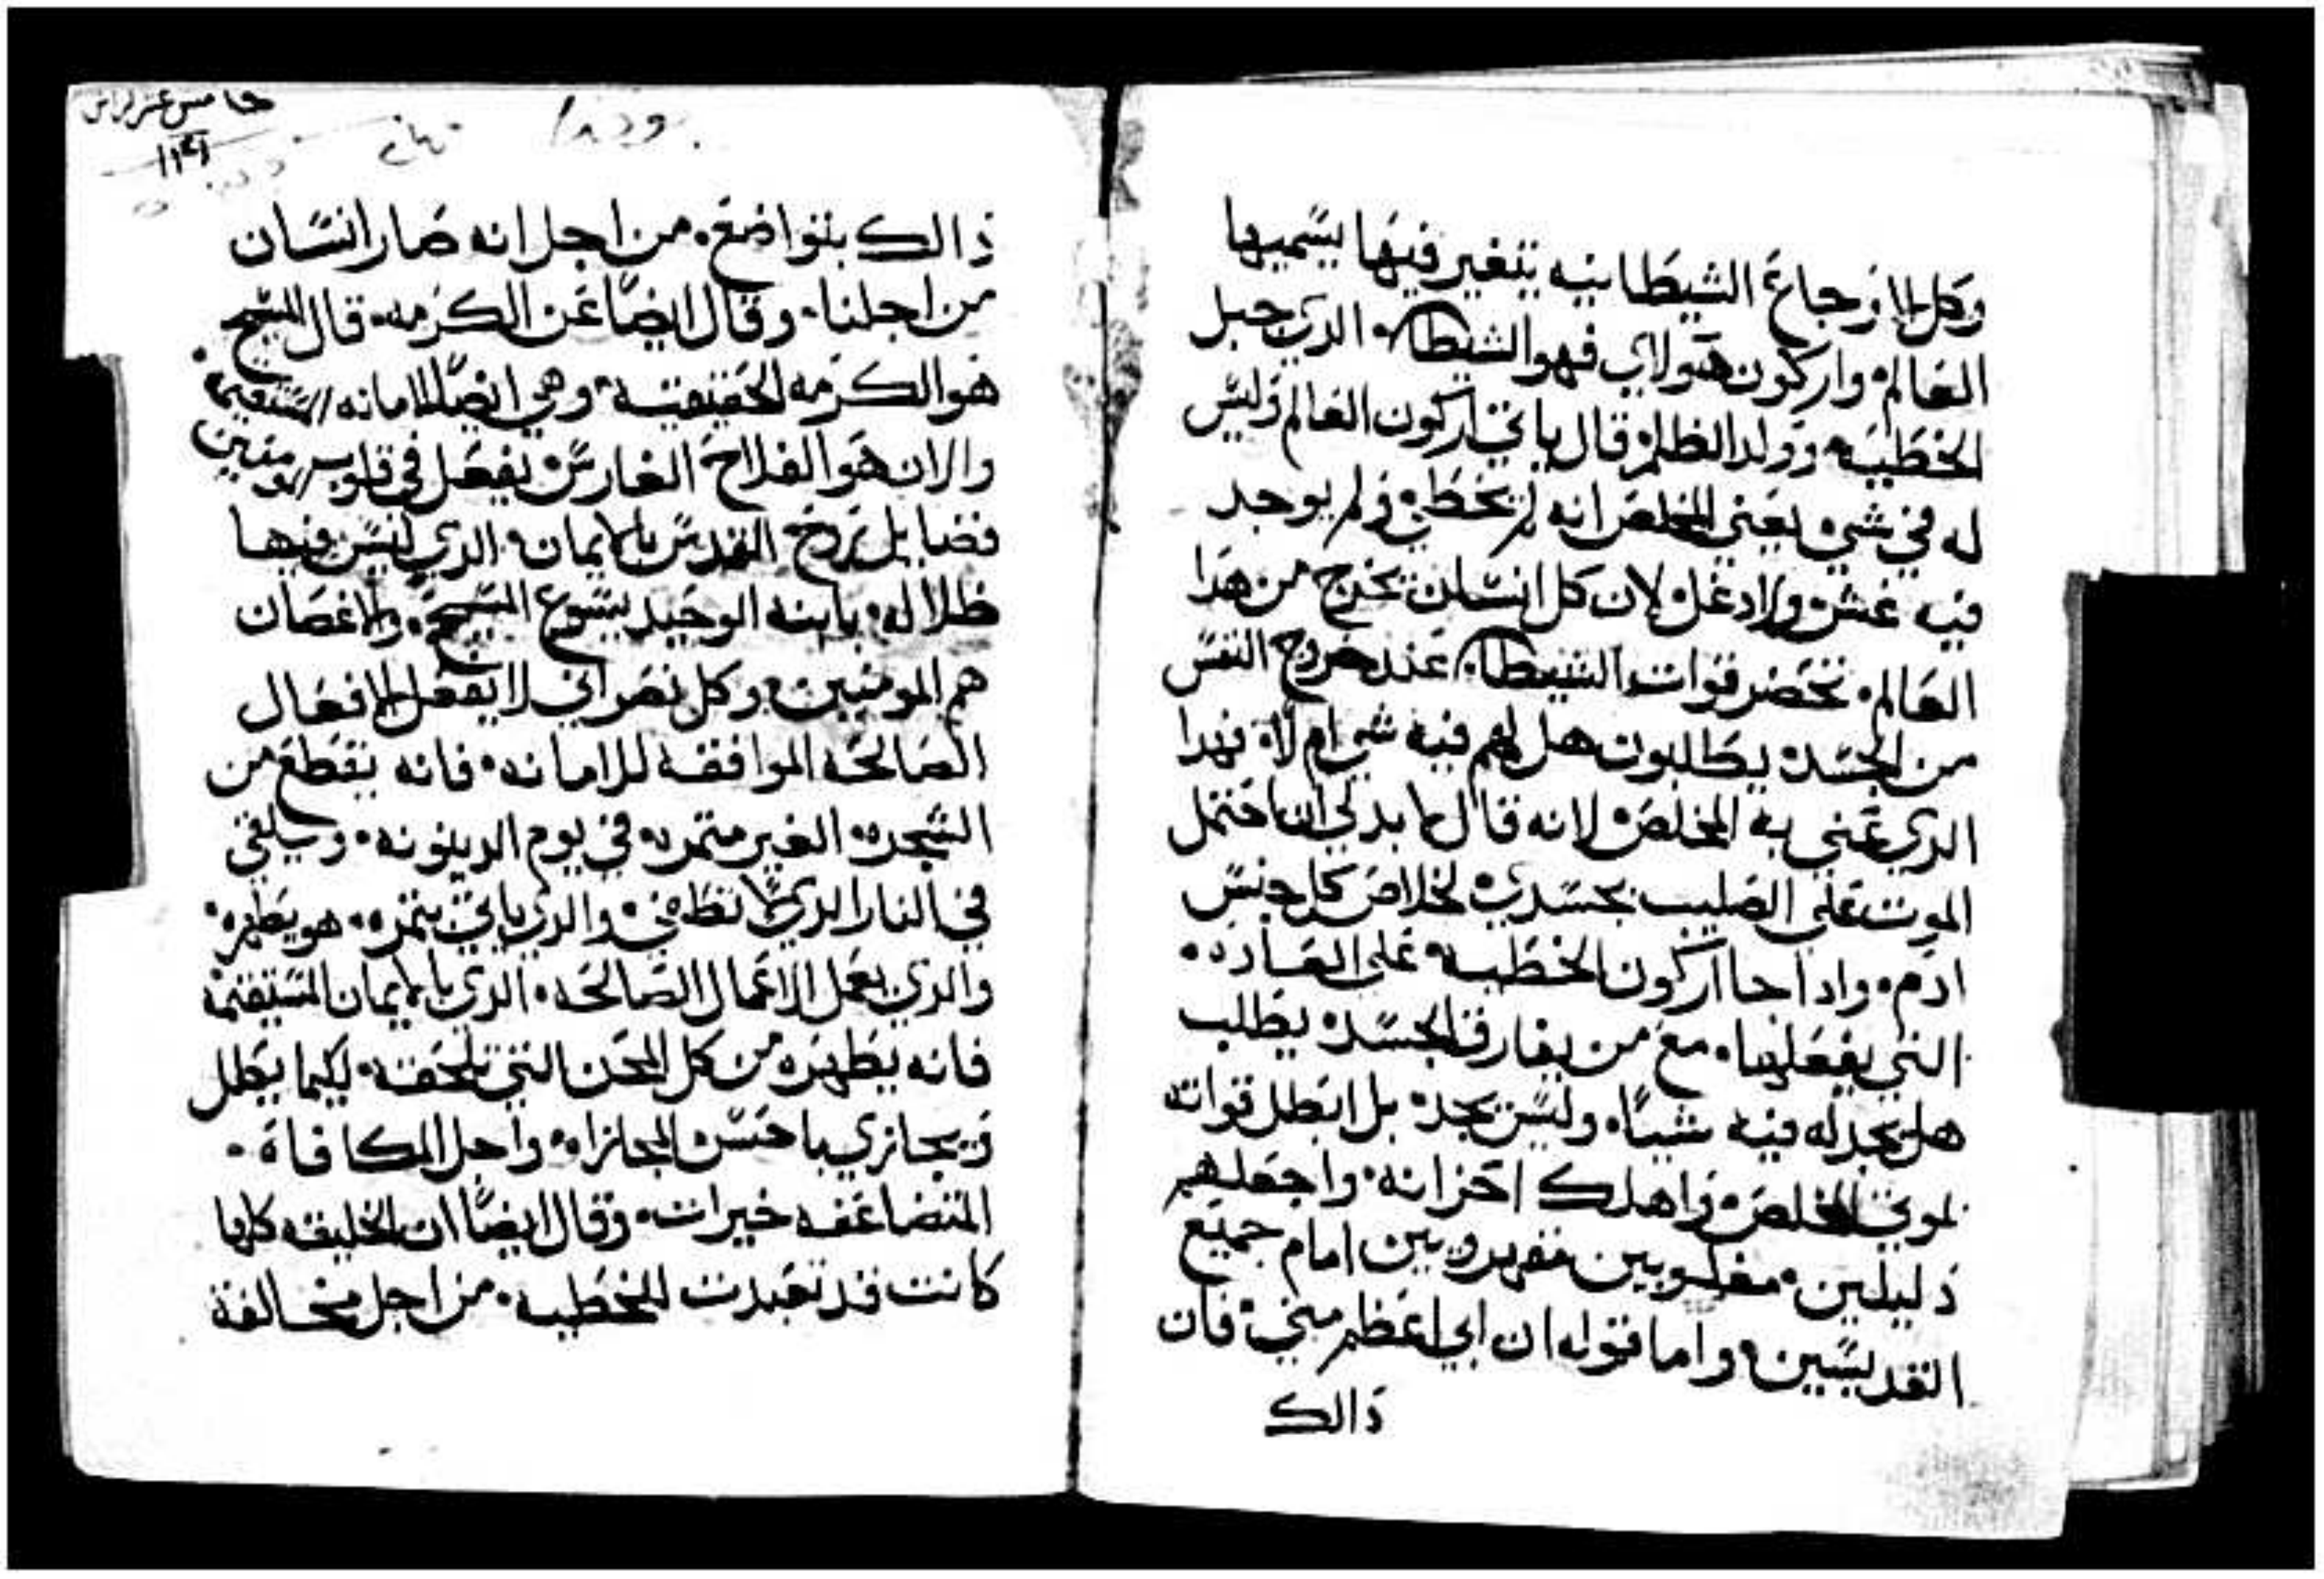 وكل الاوجاع الشيطانيه يتغير فيها يسميها
العالم واركون هولاي فهو الشيطان الدي حبل
الخطيه وولد الظلم قال ياتي اركون العالم وليس
له في شي يعني المخلص انه لم يخطي ولم يوجد
فيه غش ولا دغل لان كل انسان يخرج من هدا
العالم تحضر قوات الشيطان عند خروج النفس
من الجسد يطالبون هل لهم فيه شي ام لا فهدا
الدي عني به المخلص لانه قال لا بد لي ان احتمل
الموت على الصليب بجسدي لخلاص كل جنس
ادم وادا جا اركون الخطيه على العاده
التي يفعلها مع من يفارق الجسد يطلب
هل يجد له فيه شياً وليس يجد بل ابطل قواته
لموت المخلص واهلك احزانه واجعلهم
دليلين مغلوبين مقهورين امام جميع
القديسين واما قوله ان ابي اعظم مني فان
ذالك
خامس عشر
ذالك بتواضع من اجل انه صار انسان
من اجلنا وقال ايضاً عن الكرمه قال المسيح
هو الكرمه الحقيقيه وهي ايضاً الامانه المستقيمه
والان هو الفلاح الغارس يفعل في قلوب المومنين
فضايل بروح القدس بالايمان الدي ليس فيها
ظلاله بابنه الوحيد يسوع المسيح والاغصان
هم المومنين وكل نصراني لا يفعل الافعال
الصالحه الموافقه للامانه فانه يقطع من
الشجره الغير متمره في يوم الدينونه ويلقي
في النار الدي لا تطفي والدي ياتي بتمره هو يطهره
والدي يعمل الاعمال الصالحه الدي بالايمان المستقيم
فانه يطهره من كل المحن التي تلحقه لكيما يكلل
ويجازي باحسن المجازاه واجل المكافاة
المتضاعفه خيرات وقال ايضاً ان الخليقه كلها
كانت قد تعبدت للخطيه من اجل مخالفة